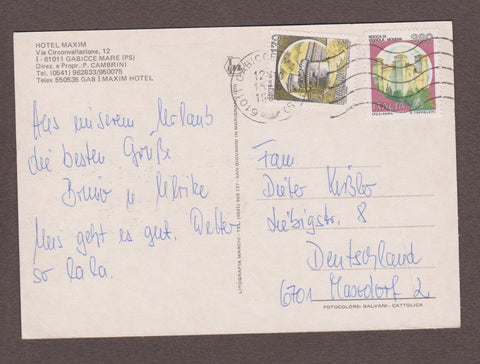 HOTEL MAXIM
Via Circonvallazione, 12
I - 61011 GABICCE MARE (PS)
Direz. e Propr.: P. CAMBRINI
Tel. (0541) 962833/950075
Telex 550535 GAB I MAXIM HOTEL
Aus unserem Urlaub
die besten Grüße
Bruno u. Ulrike
Uns geht es gut. Wetter
so la la.
LITOGRAFIA MARCHI - TEL. (0541) 945 137 - SAN GIOVANNI IN MARIGNANO
170
61011 GABICCE
ROCCA DI
VIGNOLA - MODENA
380
ITALIA
Fam.
Dieter Keßler
Liebigstr. 8
Deutschland
6701 Maxdorf 2
FOTOCOLORI GALVANI - CATTOLICA